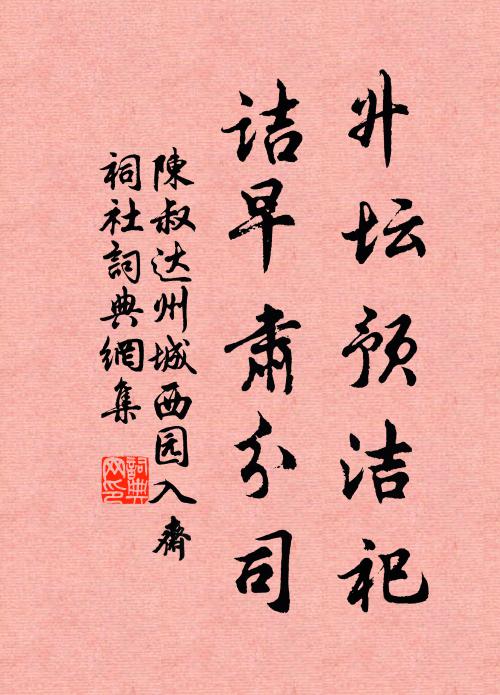 升坛预洁祀
诘早肃分司
陳叔达州城西园入齋
祠社詞典網集
詞典网印